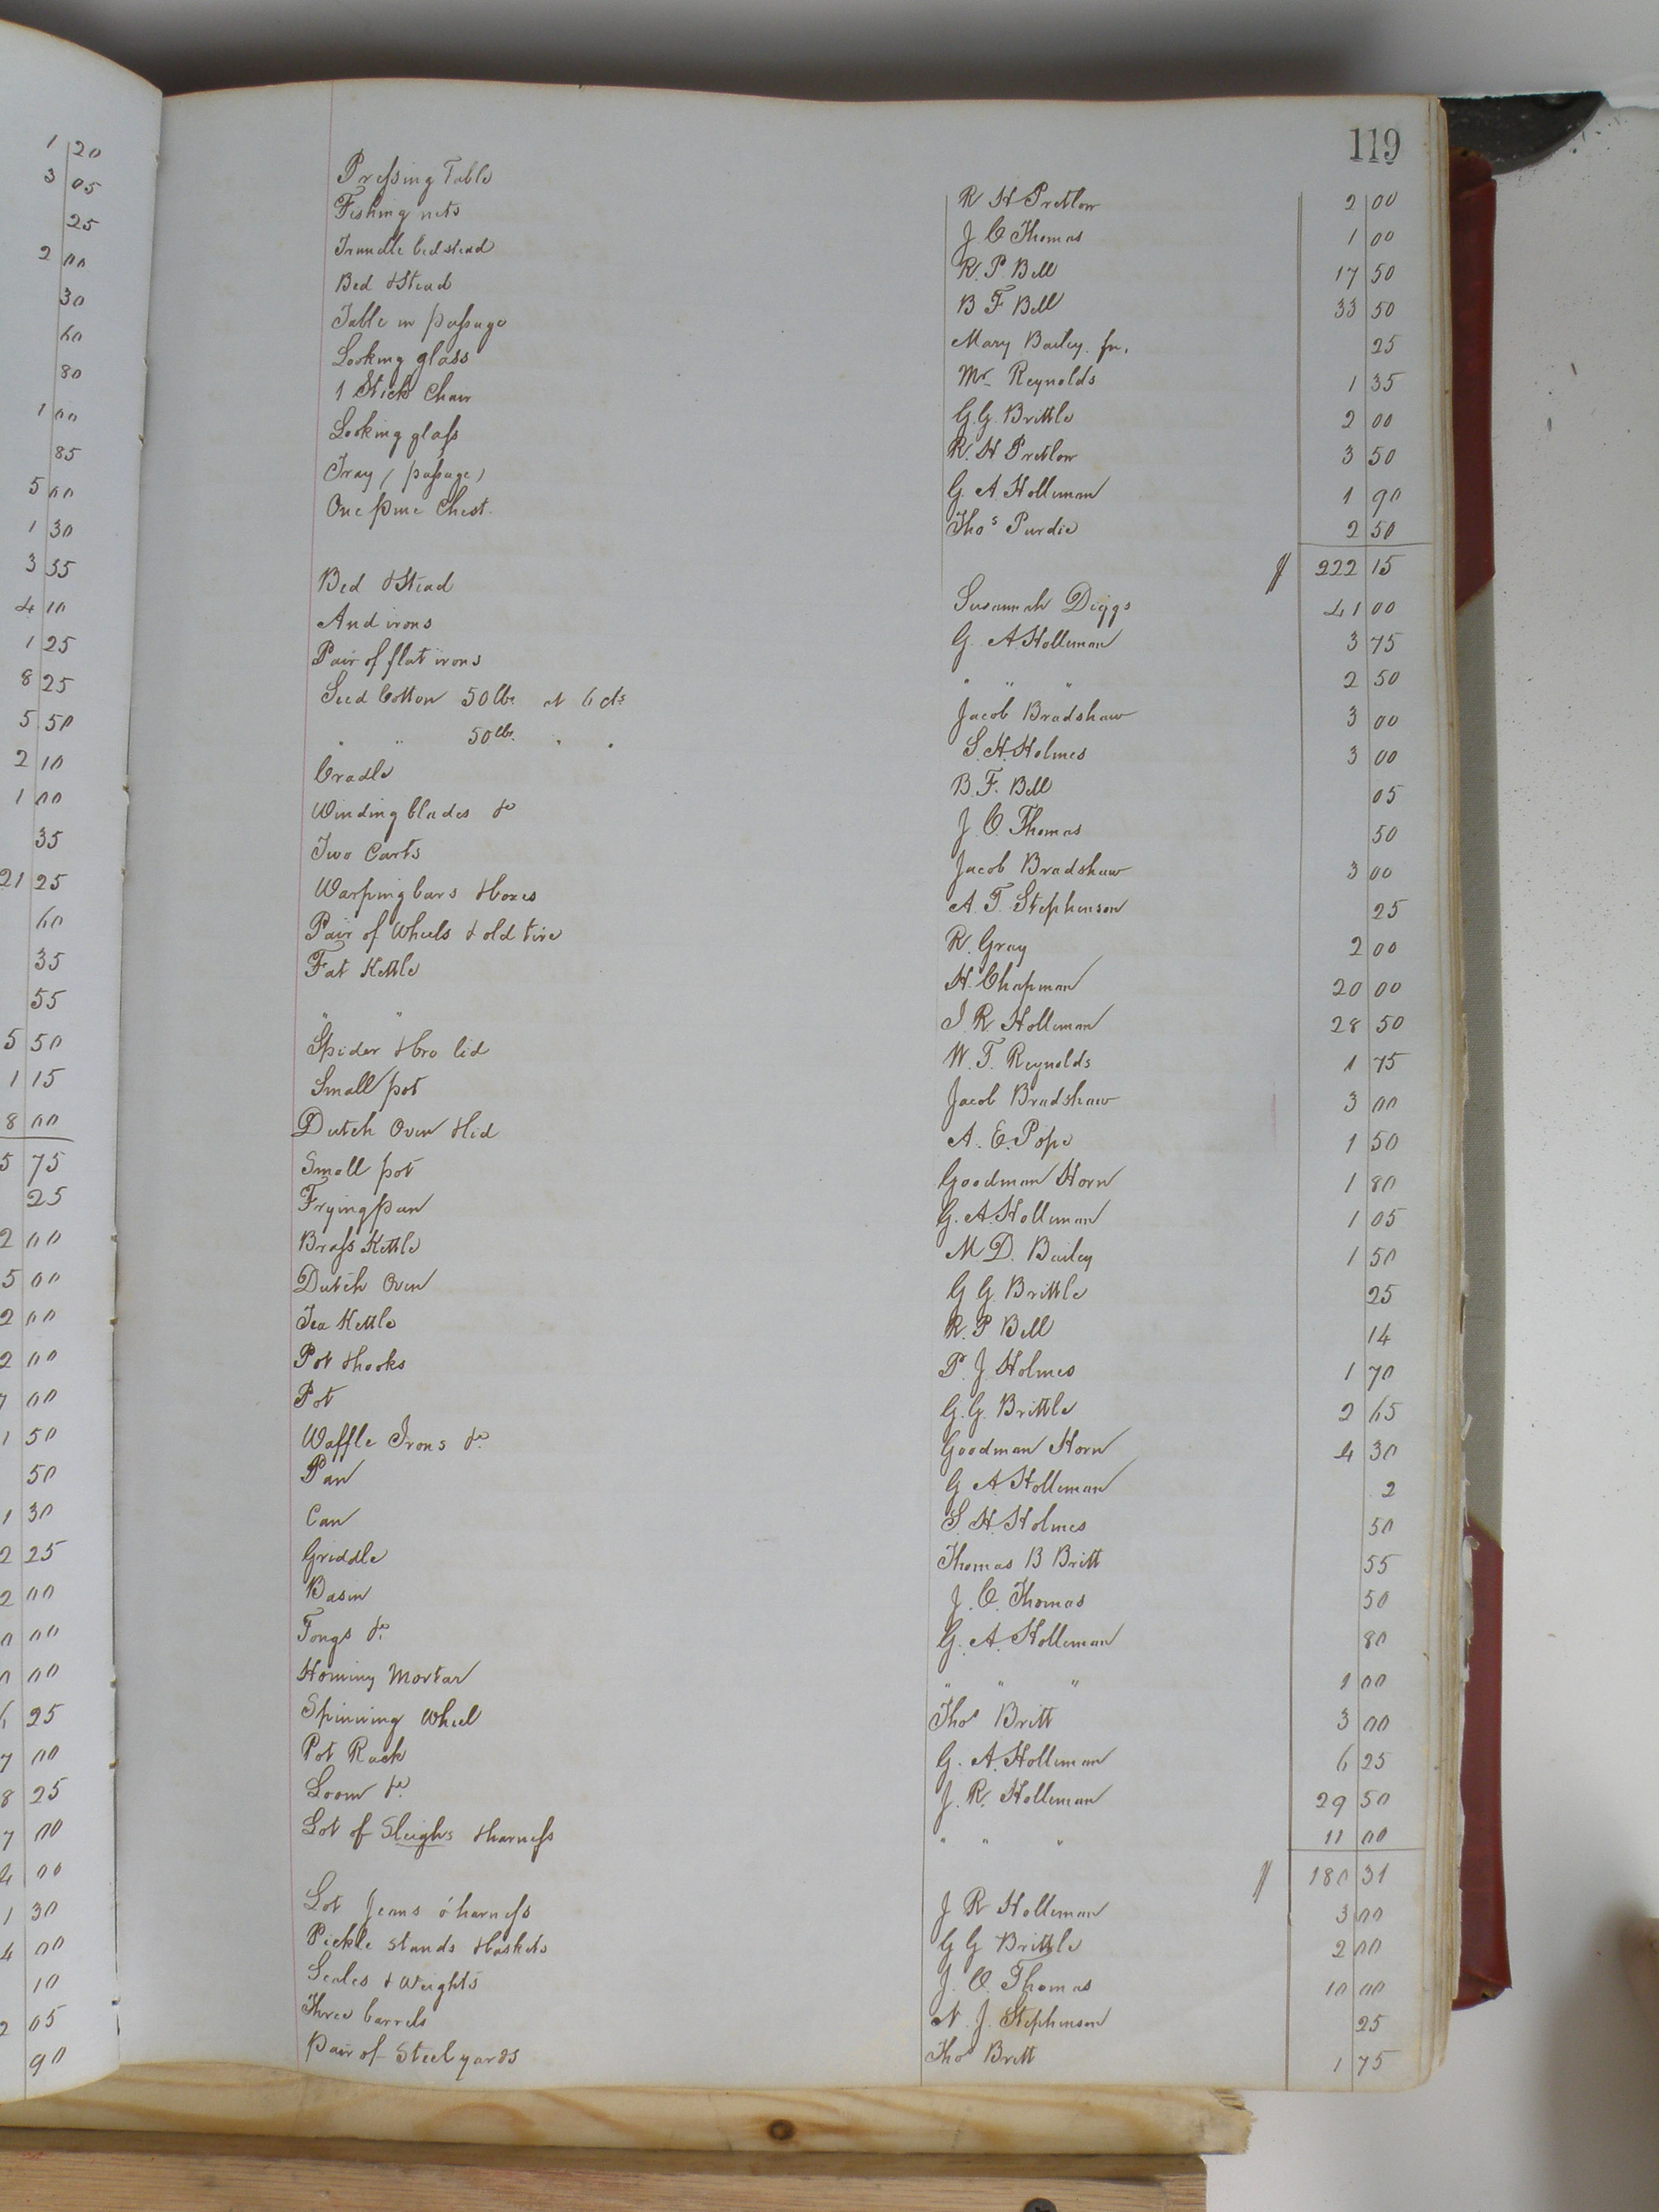 1 20
3 05
25
2 00
30
60
80
1 00
85
5 00
1 30
3 35
4 10
1 25
8 25
5 50
2 10
1 00
35
21 25
60
35
55
5 50
1 15
8 00
5 75
25
2 00
5 00
2 00
2 00
7 00
1 50
50
1 30
2 25
2 00
0 00
0 00
6 25
7 00
8 25
7 00
4 00
1 30
4 00
10
2 05
90
119
Pressing Table R H Pretlow 2 00
Fishing nets J. C Thomas 1 00
Trundle bedstead R. P. Bell 17 50
Bed & Stead B F Bell 33 50
Table in passage Mary Bailey jr. 25
Looking glass Mr Reynolds 1 35
1 Stick Chair G. G. Brittle 2 00
Looking glass R. H Pretlow 3 50
Tray (passage) G. A. Holleman 1 90
One pine Chest. Thos Purdie 2 50
222 15
Bed & Stead Susannah Diggs 41 00
And irons G. A. Holleman 3 75
Pair of flat irons " " " 2 50
Seed Cotton 50 lbs at 6 cts Jacob Bradshaw 3 00
" " 50 lbs. " " S. H. Holmes 3 00
Cradle B. F. Bell 05
Winding blades &c J. C. Thomas 50
Two Carts Jacob Bradshaw 3 00
Warping bars & boxes A. T. Stephenson 25
Pair of Wheels & old tire R. Gray 2 00
Fat Kettle H. Chapman 20 00
" " J. R Holleman 28 50
Spider & bro lid W. T. Reynolds 1 75
Small pot Jacob Bradshaw 3 00
Dutch Oven & lid A. E. Pope 1 50
Small pot Goodman Horn 1 80
Fryingpan G. A. Holleman 1 05
Brass Kettle M. D. Bailey 1 50
Dutch Oven G G. Brittle 25
Tea Kettle R. P Bell 14
Pot & hooks P. J. Holmes 1 70
Pot G. G. Brittle 2 65
Waffle Irons &c. Goodman Horn 4 30
Pan G A Holleman 2
Can S. H. Holmes 50
Griddle Thomas B Britt 55
Basin J. C. Thomas 50
Tongs &c. G. A. Holleman 80
Hominy Mortar " " " 1 00
Spinning Wheel Thos Britt 3 00
Pot Rack G. A. Holleman 6 25
Loom &c. J. R. Holleman 29 50
Lot of Sleighs & harness " " " 11 00
180 31
Lot Jeans & harness J R Holleman 3 00
Pickle stands & baskets G G Brittle 2 00
Scales & Weights J. C. Thomas 10 00
Three barrels N. J. Stephenson 25
Pair of Steelyards Thos Britt 1 75